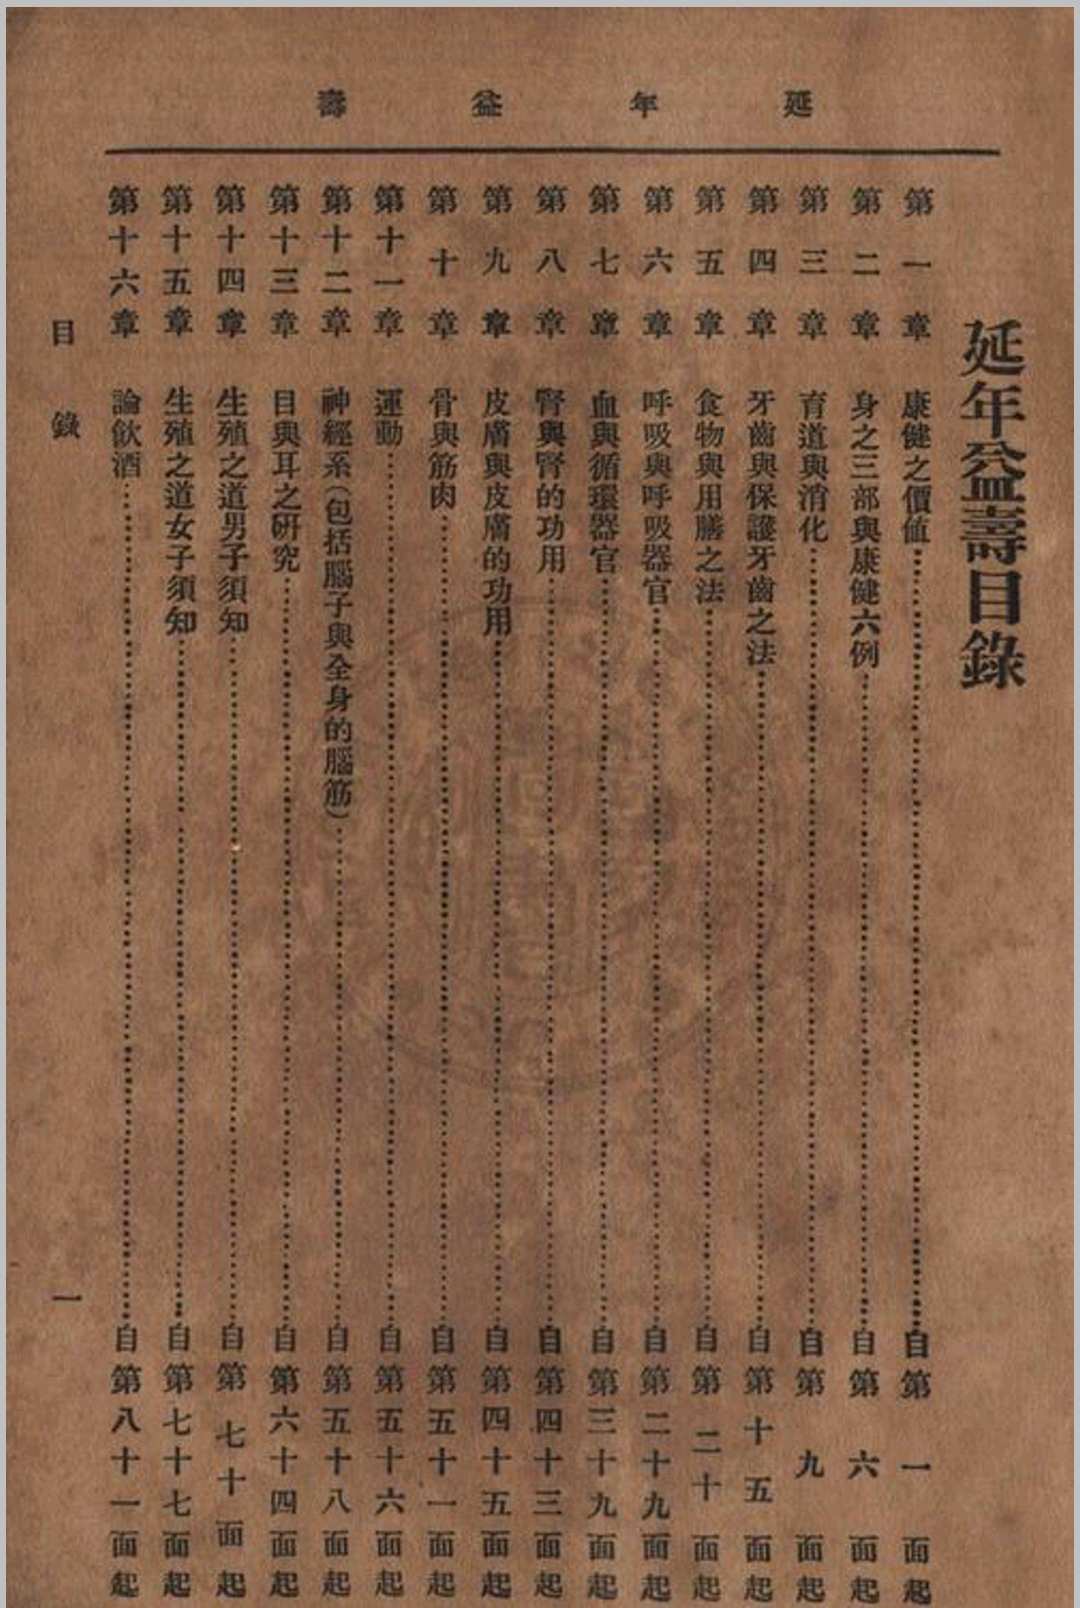 延年益壽
延年益壽目錄
第一章 康健之價值…自第一面起
第二章 身之三部與康健六例…自第六面起
第三章 育道與消化…自第九面起
第四章 牙齒與保護牙齒之法…自第十五面起
第五章 食物與用膳之法…自第二十面起
第六章 呼吸與呼吸器官…自第二十九面起
第七章 血與循環器官…自第三十九面起
第八章 腎與腎的功用…自第四十三面起
第九章 皮膚與皮膚的功用…自第四十五面起
第十章 骨與筋肉…自第五十一面起
第十一章 運動…自第五十六面起
第十二章 神經系(包括腦子與全身的腦筋)…自第五十八面起
第十三章 目與耳之研究…自第六十四面起
第十四章 生殖之道男子須知…自第七十面起
第十五章 生殖之道女子須知…自第七十七面起
第十六章 論飲酒…自第八十一面起
目錄 一